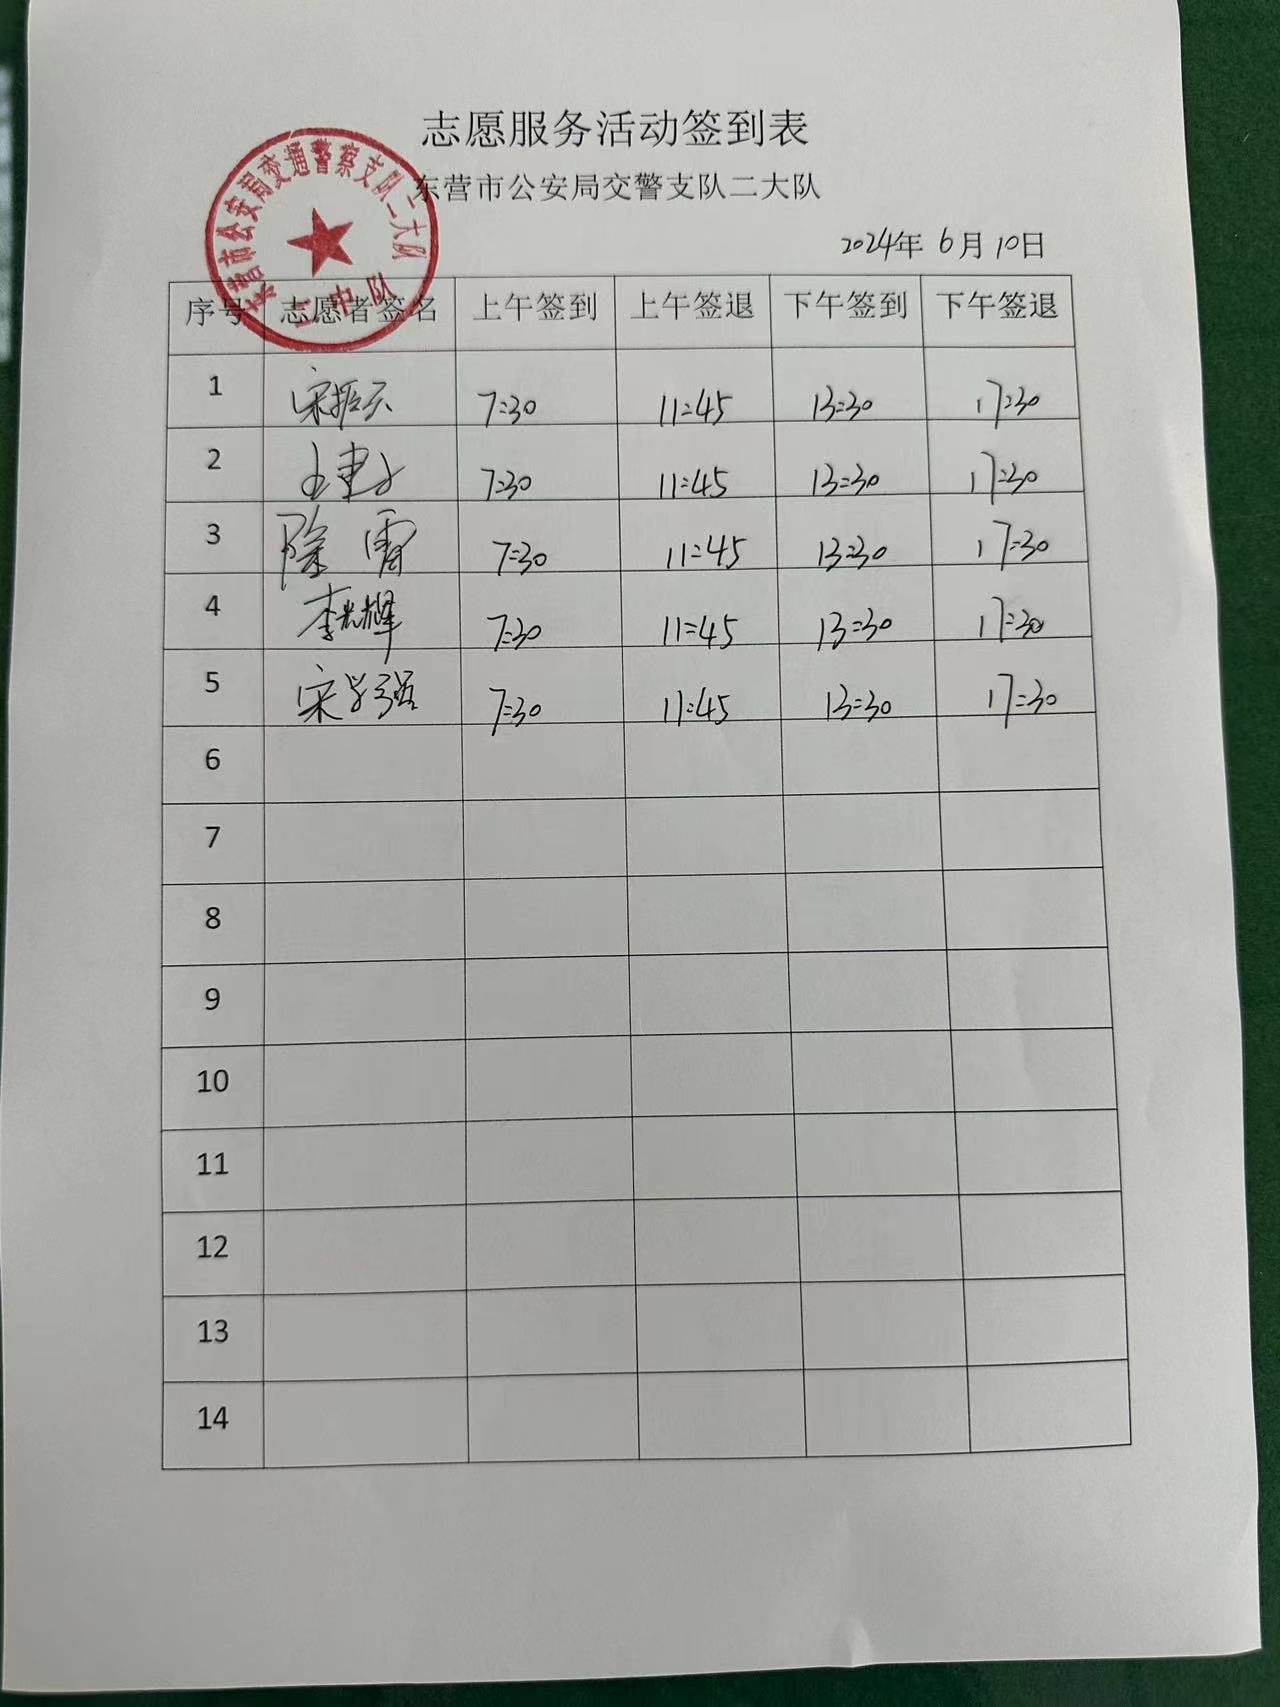 志愿服务活动签到表
东营市公安局交警支队二大队
东营市公安局交通警察支队二大队
中队
2024年 6月10日
序号 志愿者签名 上午签到 上午签退 下午签到 下午签退
1 宋振云 7:30 11:45 13:30 17:30
2 7:30 11:45 13:30 17:30
3 徐雷 7:30 11:45 13:30 17:30
4 李光辉 7:30 11:45 13:30 17:30
5 宋学强 7:30 11:45 13:30 17:30
6
7
8
9
10
11
12
13
14